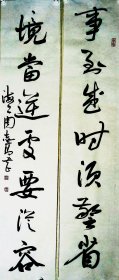 事到盛时须警省
境当逆处要从容